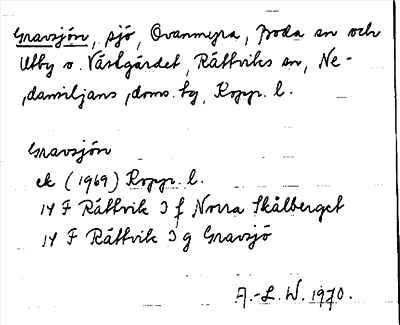 Gravsjön, sjö, Ovanmyra, Boda sn och
Utby o. Västgärdet, Rättviks sn, Ne-
dansiljans doms. tg, Kopp. l.
Gravsjön
ek (1969) Kopp. l.
14 F Rättvik 3 f Norra Skålberget
14 F Rättvik 3 g Gravsjö
A.-L. W. 1970.